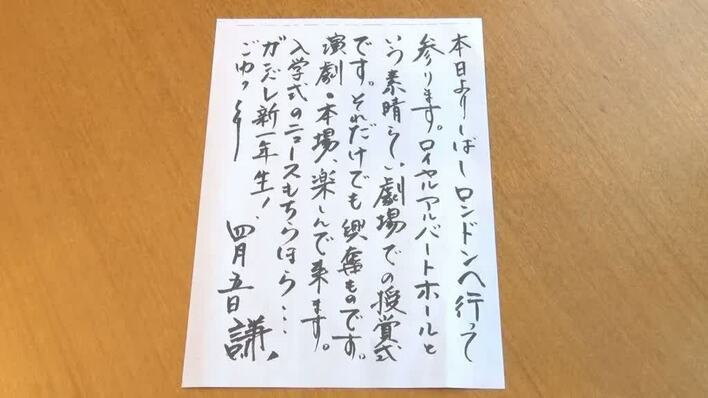 本日よりしばしロンドンへ行って
参ります。ロイヤルアルバートホールと
いう素晴らしい劇場での授賞式
です。それだけでも興奮ものです。
演劇の本場、楽しんで来ます。
入学式のニュースもちらほら...
ガンバレ新一年生!、
ごゆっくり
四月五日 謙、